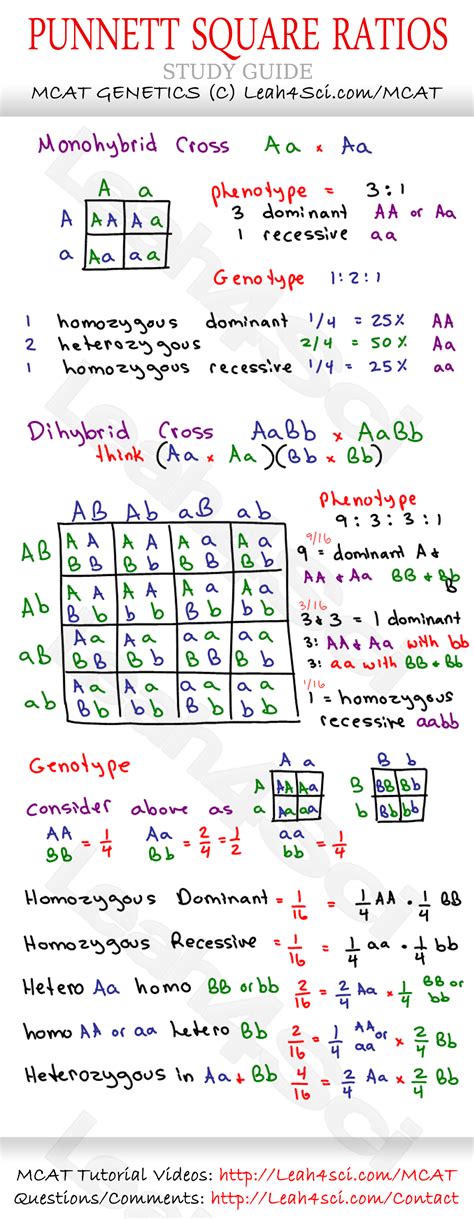 PUNNETT SQUARE RATIOS
STUDY GUIDE
MCAT GENETICS (C) Leah4Sci.com/MCAT
Monohybrid Cross Aa x Aa
A a
A AA Aa
a Aa aa
phenotype = 3:1
3 dominant AA or Aa
1 recessive aa
Genotype 1:2:1
1 homozygous dominant 1/4 = 25% AA
2 heterozygous 2/4 = 50% Aa
1 homozygous recessive 1/4 = 25% aa
Dihybrid Cross AaBb x AaBb
think (Aa x Aa)(Bb x Bb)
AB Ab aB ab
AB AA AA Aa Aa
BB Bb BB Bb
Ab AA AA Aa Aa
Bb bb Bb bb
aB Aa Aa aa aa
BB Bb BB Bb
ab Aa Aa aa aa
Bb bb Bb bb
Phenotype
9:3:3:1
9/16
9 = dominant A & B
AA & Aa BB & Bb
3/16
3 & 3 = 1 dominant
3: AA & Aa with bb
3: aa with BB & Bb
1/16
1 = homozygous
recessive aabb
Genotype
consider above as
A a
A AA Aa
a Aa aa
B b
B BB Bb
b Bb bb
AA BB = 1/4 Aa Bb = 2/4 = 1/2 aa bb = 1/4
Homozygous Dominant = 1/16 = 1/4 AA · 1/4 BB
Homozygous Recessive = 1/16 = 1/4 aa · 1/4 bb
Hetero Aa homo BB or bb 2/16 = 2/4 Aa x 1/4 BB or bb
homo AA or aa hetero Bb 2/16 = 1/4 AA or aa x 2/4 Bb
Heterozygous in Aa + Bb 4/16 = 2/4 Aa x 2/4 Bb
MCAT Tutorial Videos: http://Leah4sci.com/MCAT
Questions/Comments: http://Leah4sci.com/Contact
Leah4Sci
Leah4Sci
Leah4Sci
Leah4Sci